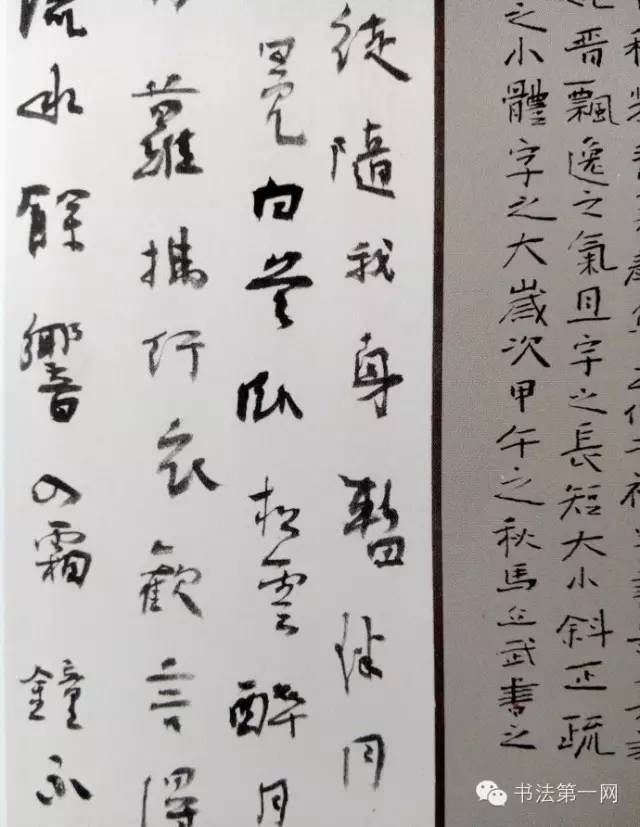 晋飄逸之氣且字之長短大小斜正疏
之小體字之大歲次甲午之秋馬立武書之
徒隨我身暫伴月
冕白首臥松雲醉月
蘿拂行衣歡言得
流水餘響入霜鐘不
书法第一网